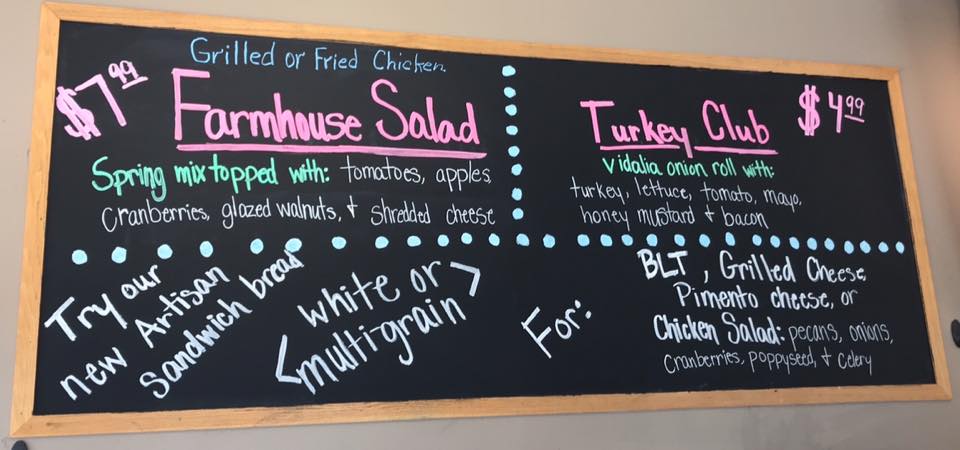 Grilled or Fried Chicken.
$7.99
Farmhouse Salad
Spring mix topped with: tomatoes, apples
Cranberries, glazed walnuts, & shredded cheese
Turkey Club
$4.99
Vidalia onion roll with:
turkey, lettuce, tomato, mayo,
honey mustard & bacon
Try our
new Artisan
sandwich bread
<white or
multi-grain>
For:
BLT, Grilled Cheese,
Pimento cheese, or
Chicken Salad: pecans, onions,
Cranberries, poppyseed, & Celery